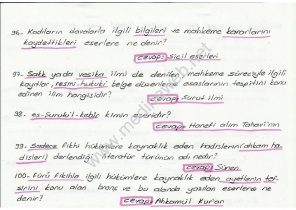 96- Kadıların davalarla ilgili bilgileri ve mahkeme kararlarını
kaydettikleri eserlere ne denir?
cevap: Sicil eserleri
97- Sakk ya da vesika ilmi de denilen, mahkeme süreciyle ilgili
kayıtlar, resmi-hukuki belge düzenleme esaslarının tespitini konu
edinen ilim hangisidir?
cevap: Şurut ilmi
98- eş-Şurutu'l-kebir kimin eseridir?
cevap: Hanefi alim Tahavi'nin
99- Sadece fıkhi hükümlere kaynaklık eden hadislerin (ahkam ha
disleri) derlendiği literatür türünün adı nedir?
cevap: Sünen
100- Fürû Fıkıhla ilgili hükümlere kaynaklık eden ayetlerin tef-
sirini konu alan branş ve bu alanda yazılan eserlere ne
denir?
cevap: Ahkamül Kur'an